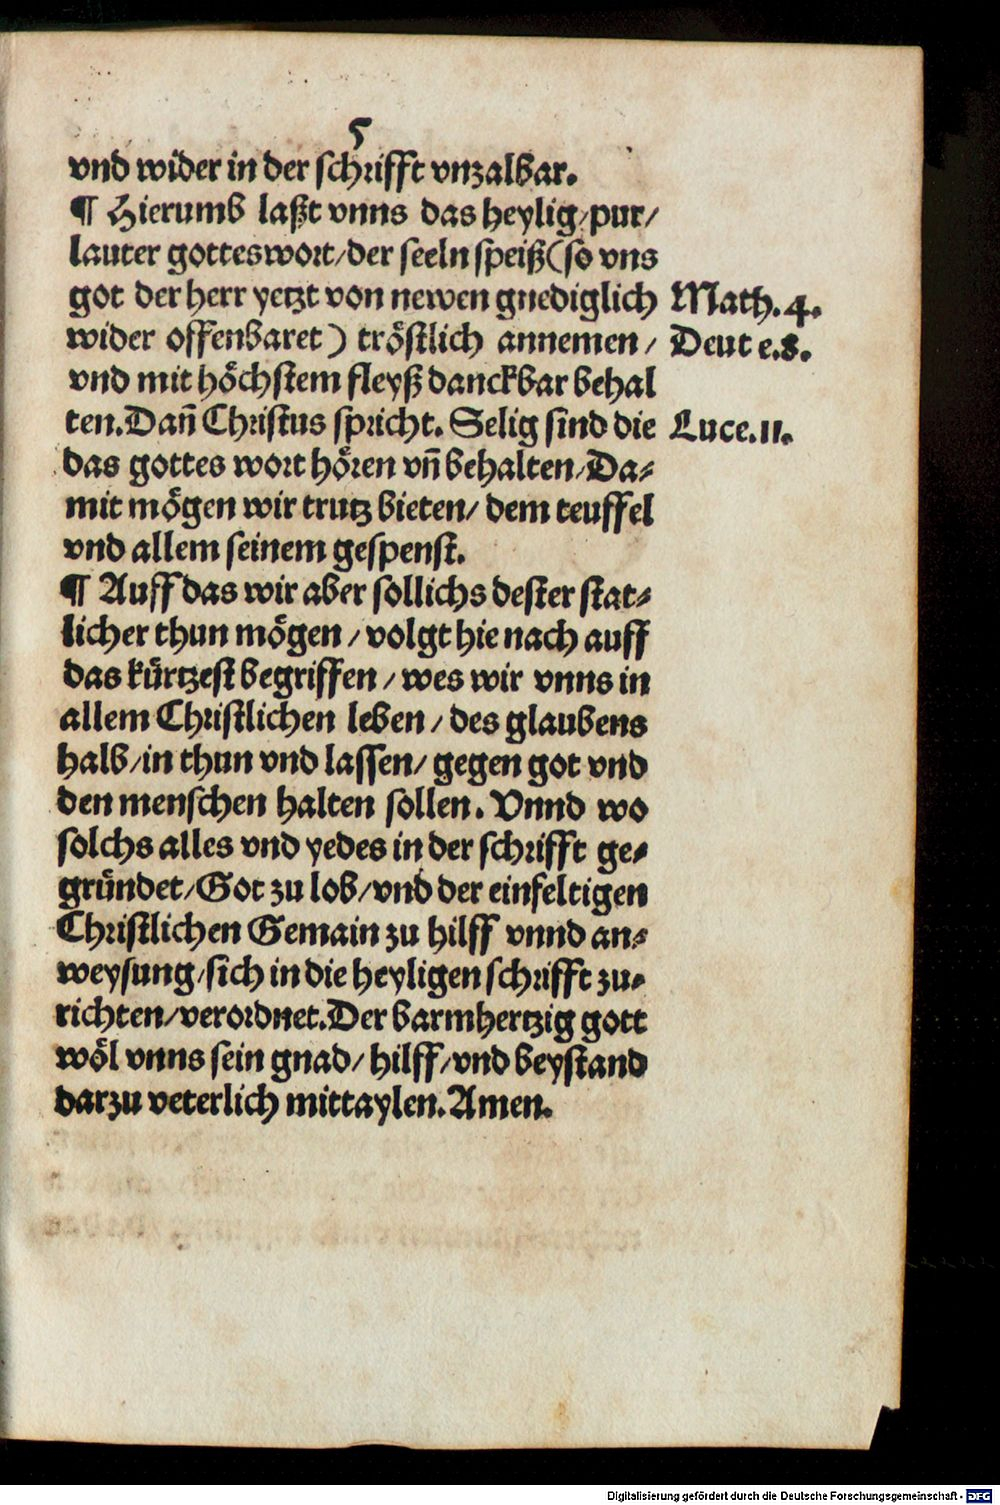 5
vnd wider in der schrifft vnzalbar.
¶ Hierumb laßt vnns das heylig/pur/
lauter gotteswort/der seeln speiß(so vns
got der herr yetzt von newen gnediglich Math.4.
wider offenbaret) tröstlich annemen/ Deut e.8.
vnd mit höchstem fleyß danckbar behal
ten.Dañ Christus spricht. Selig sind die Luce.11.
das gottes wort hören vñ behalten/Da-
mit mögen wir trutz bieten/ dem teuffel
vnd allem seinem gespenst.
¶ Auff das wir aber sollichs dester stat-
licher thun mögen/volgt hie nach auff
das kürtzest begriffen/wes wir vnns in
allem Christlichen leben/des glaubens
halb/in thun vnd lassen/ gegen got vnd
den menschen halten sollen. Vnnd wo
solchs alles vnd yedes in der schrifft ge-
gründet/Got zu lob/vnd der einfeltigen
Christlichen Gemain zu hilff vnnd an-
weysung/sich in die heyligen schrifft zu-
richten/verordnet.Der barmhertzig gott
wöl vnns sein gnad/ hilff/vnd beystand
darzu veterlich mittaylen.Amen.
Digitalisierung gefördert durch die Deutsche Forschungsgemeinschaft - DFG